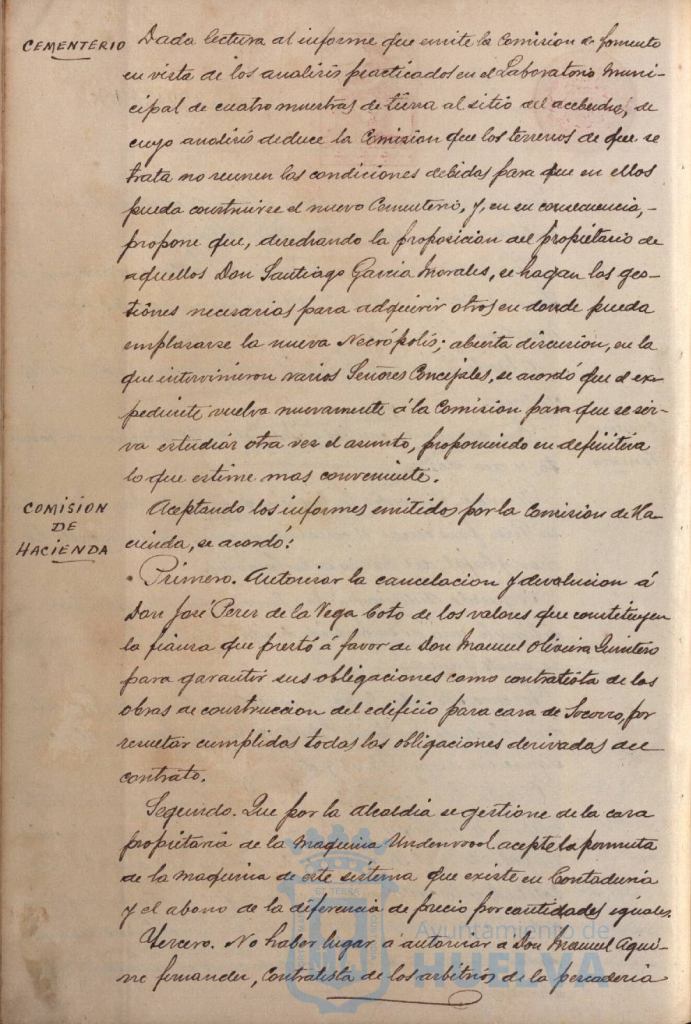 CEMENTERIO
Dada lectura al informe que emite la Comision de fomento
en vista de los analisis practicados en el Laboratorio Muni-
cipal de cuatro muestras de tierra al sitio del acebuche, de
cuyo analisis deduce la Comision que los terrenos de que se
trata no reunen las condiciones debidas para que en ellos
pueda construirse el nuevo Cementerio, y, en su consecuencia,-
propone que, desechando la proposicion del propietario de
aquellos Don Santiago Garcia Morales, se hagan las ges-
tiones necesarias para adquirir otros en donde pueda
emplazarse la nueva Necrópolis; abierta discusion, en la
que intervinieron varios Señores Concejales, se acordó que el ex-
pediente vuelva nuevamente á la Comision para que se sir-
va estudiar otra vez el asunto, proponiendo en definitiva
lo que estime mas conveniente.
COMISION
DE
HACIENDA
Aceptando los informes emitidos por la Comision de Ha-
cienda, se acordó:
Primero. Autorizar la cancelacion y devolucion á
Don José Perez de la Vega Coto de los valores que constituyen
la fianza que prestó á favor de Don Manuel Oliveira Quintero
para garantir sus obligaciones como contratista de las
obras de construccion del edificio para casa de Socorro, por
resultar cumplidas todas las obligaciones derivadas del
contrato.
Segundo. Que por la alcaldia se gestione de la casa
propietaria de la maquina Undervood acepte la permuta
de la maquina de este sistema que existe en Contaduria
y el abono de la diferencia de precio por cantidades iguales.
Tercero. No haber lugar á autorizar á Don Manuel Agui-
rre fernandez, Contratista de los arbitrios de la pescaderia
Ayuntamiento de
HUELVA